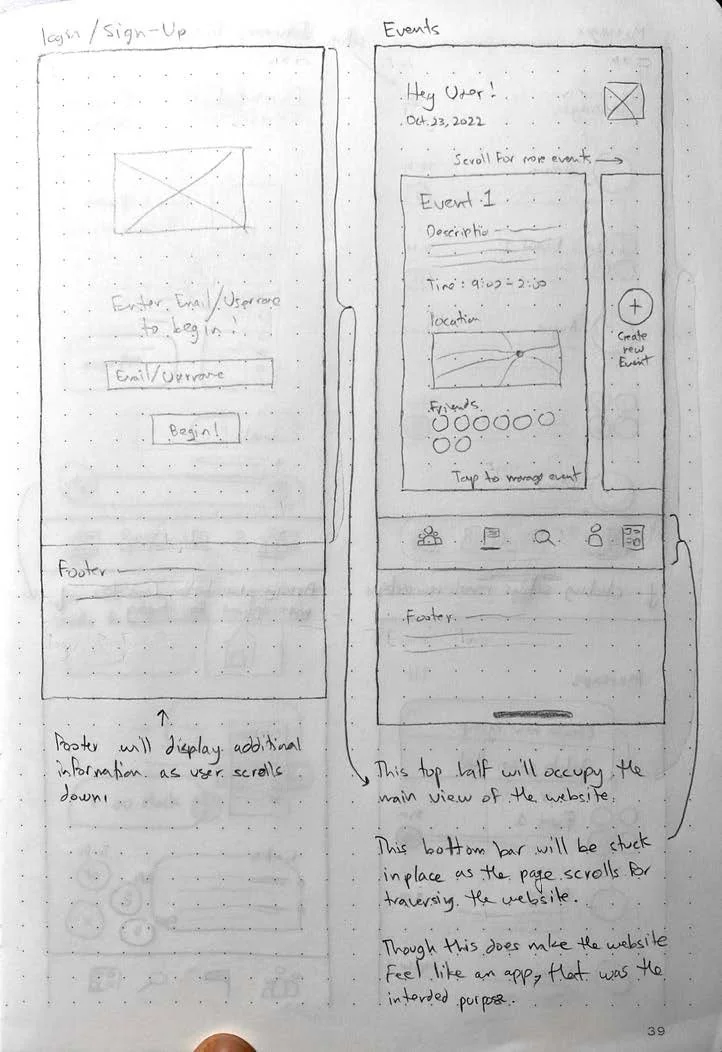 login / Sign-Up
Enter Email/Username
to begin!
Email/Username
Begin!
Footer
Footer will display additional
information as user scrolls
down.
Events
Hey User!
Oct. 23, 2022
Scroll for more events →
Event 1
Description
Time: 9:00 - 2:00
location
Friends
Tap to manage event
+
Create
new
Event
Footer
This top half will occupy the
main view of the website.
This bottom bar will be stuck
in place as the page scrolls for
traversing the website.
Though this does make the website
feel like an app, that was the
intended purpose.
39